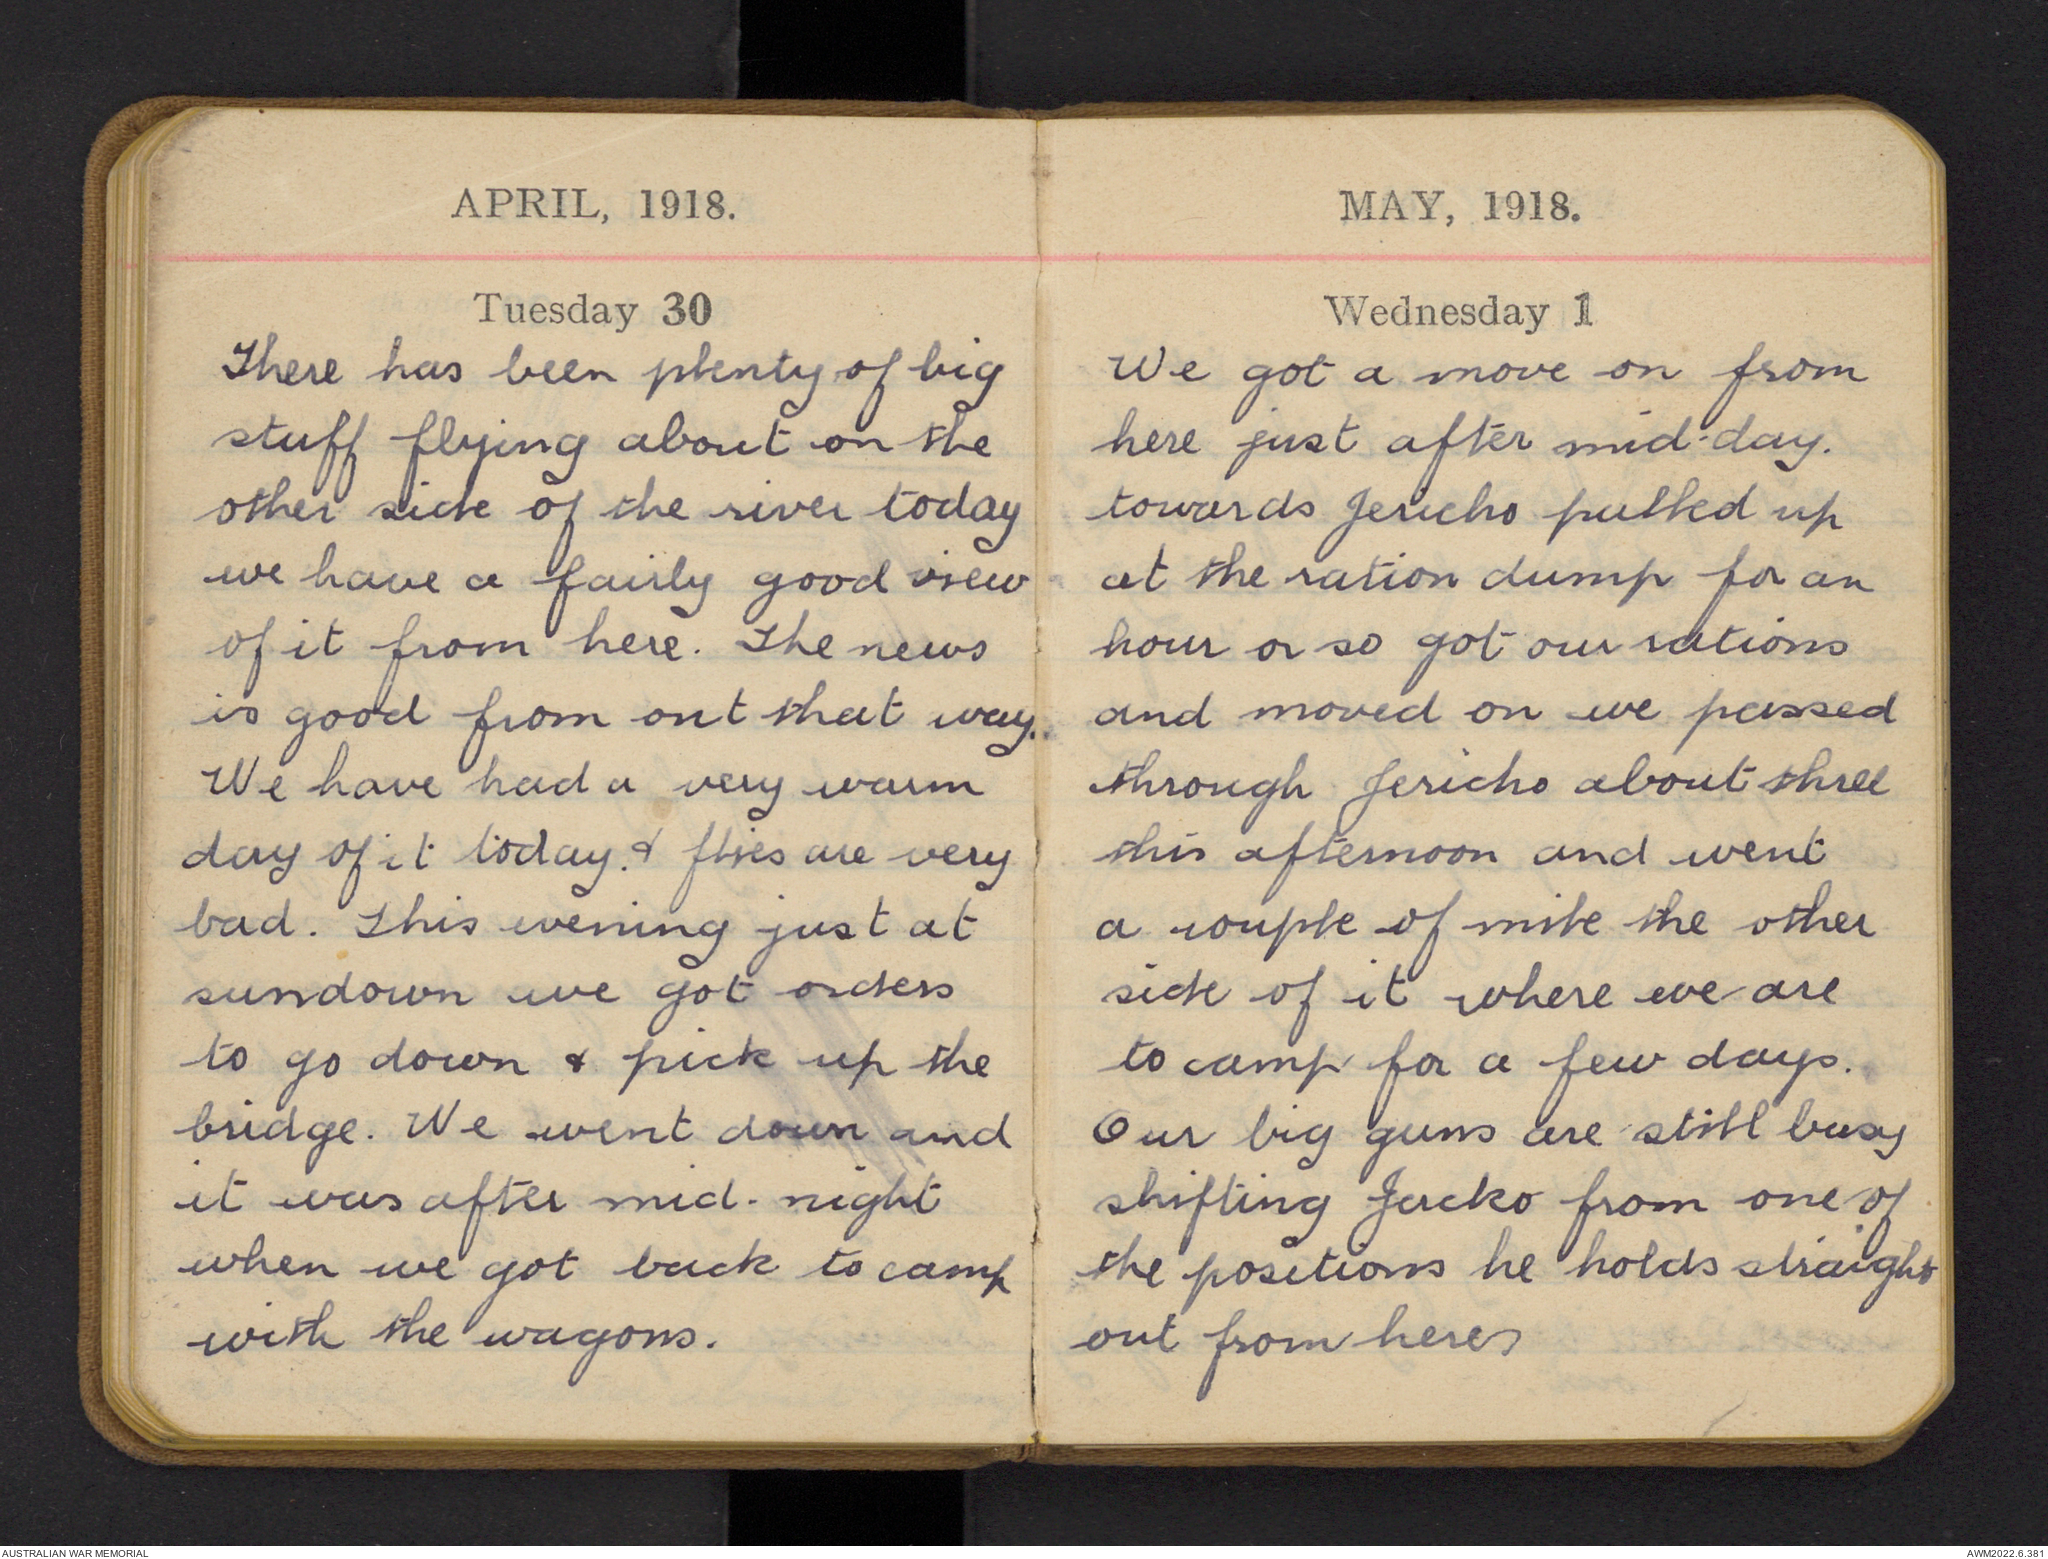 APRIL, 1918.
Tuesday 30
There has been plenty of big
stuff flying about on the
other side of the river today
we have a fairly good view
of it from here. The news
is good from out that way.
We have had a very warm
day of it today. & flies are very
bad. This evening just at
sundown we got orders
to go down & pick up the
bridge. We went down and
it was after mid-night
when we got back to camp
with the wagons.
MAY, 1918.
Wednesday 1
We got a move on from
here just after mid-day.
towards Jericho pulled up
at the ration dump for an
hour or so got our rations
and moved on we passed
through Jericho about three
this afternoon and went
a couple of mile the other
side of it where we are
to camp for a few days.
Our big guns are still busy
shifting Jacko from one of
the positions he holds straight
out from here
AUSTRALIAN WAR MEMORIAL
AWM2022.6.381